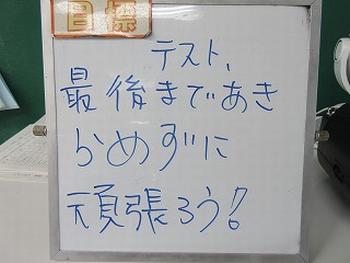 目標
テスト、
最後まであき
らめずに
頑張ろう!